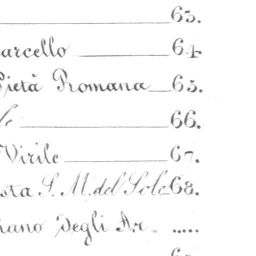 63.
arcello 64
Pietà Romana 65.
le 66.
Virile 67.
sta S. M. del Sole 68.
iano Degli Ar. .....